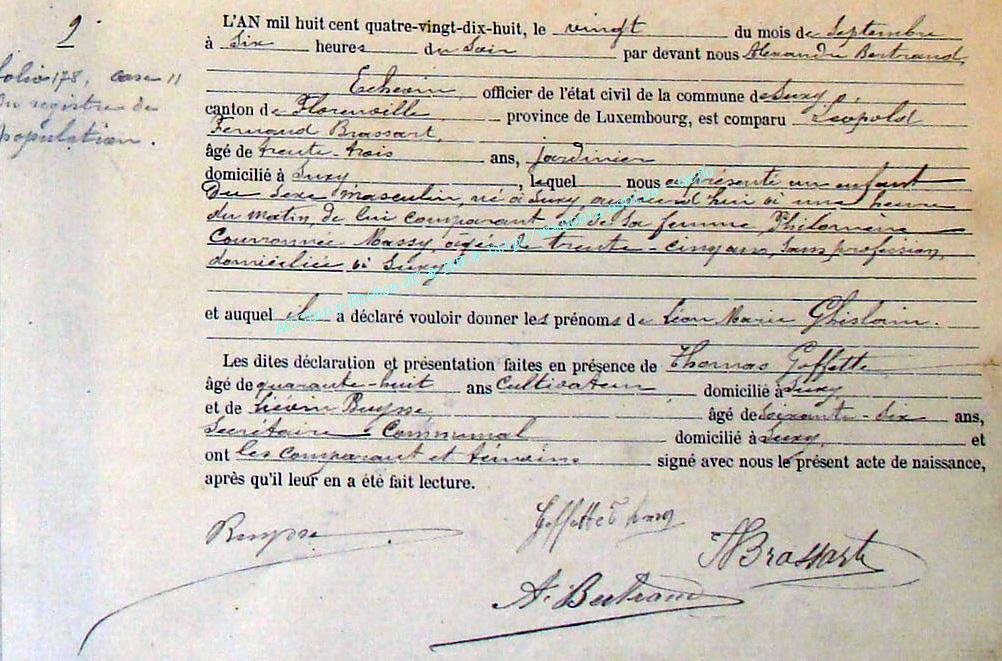 9
folio 178, case 11
du registre de
population.
L'AN mil huit cent quatre-vingt-dix-huit, le vingt du mois de Septembre
à Six heures du Soir par devant nous Alexandre Bertrand,
Echevin, officier de l'état civil de la commune de Suxy,
canton de Florenville province de Luxembourg, est comparu Léopold
Fernand Brassart,
âgé de trente-trois ans, jardinier
domicilié à Suxy, lequel nous a présenté un enfant
du sexe masculin, né à Suxy aujourd'hui à une heure
du matin, de lui comparant et de sa femme, Philomène
Couronnée Massy, âgée de trente-cinq ans, sans profession,
domiciliée à Suxy
et auquel il a déclaré vouloir donner les prénoms de Léon Marie Ghislain.
Les dites déclaration et présentation faites en présence de Thomas Goffette
âgé de quarante-huit ans Cultivateur domicilié à Suxy
et de Liévin Buysse, âgé de Soixante-Six ans,
Secrétaire Communal domicilié à Suxy, et
ont les comparant et témoins signé avec nous le présent acte de naissance,
après qu'il leur en a été fait lecture.
Goffette Thomas
Buysse
Brassart
A. Bertrand